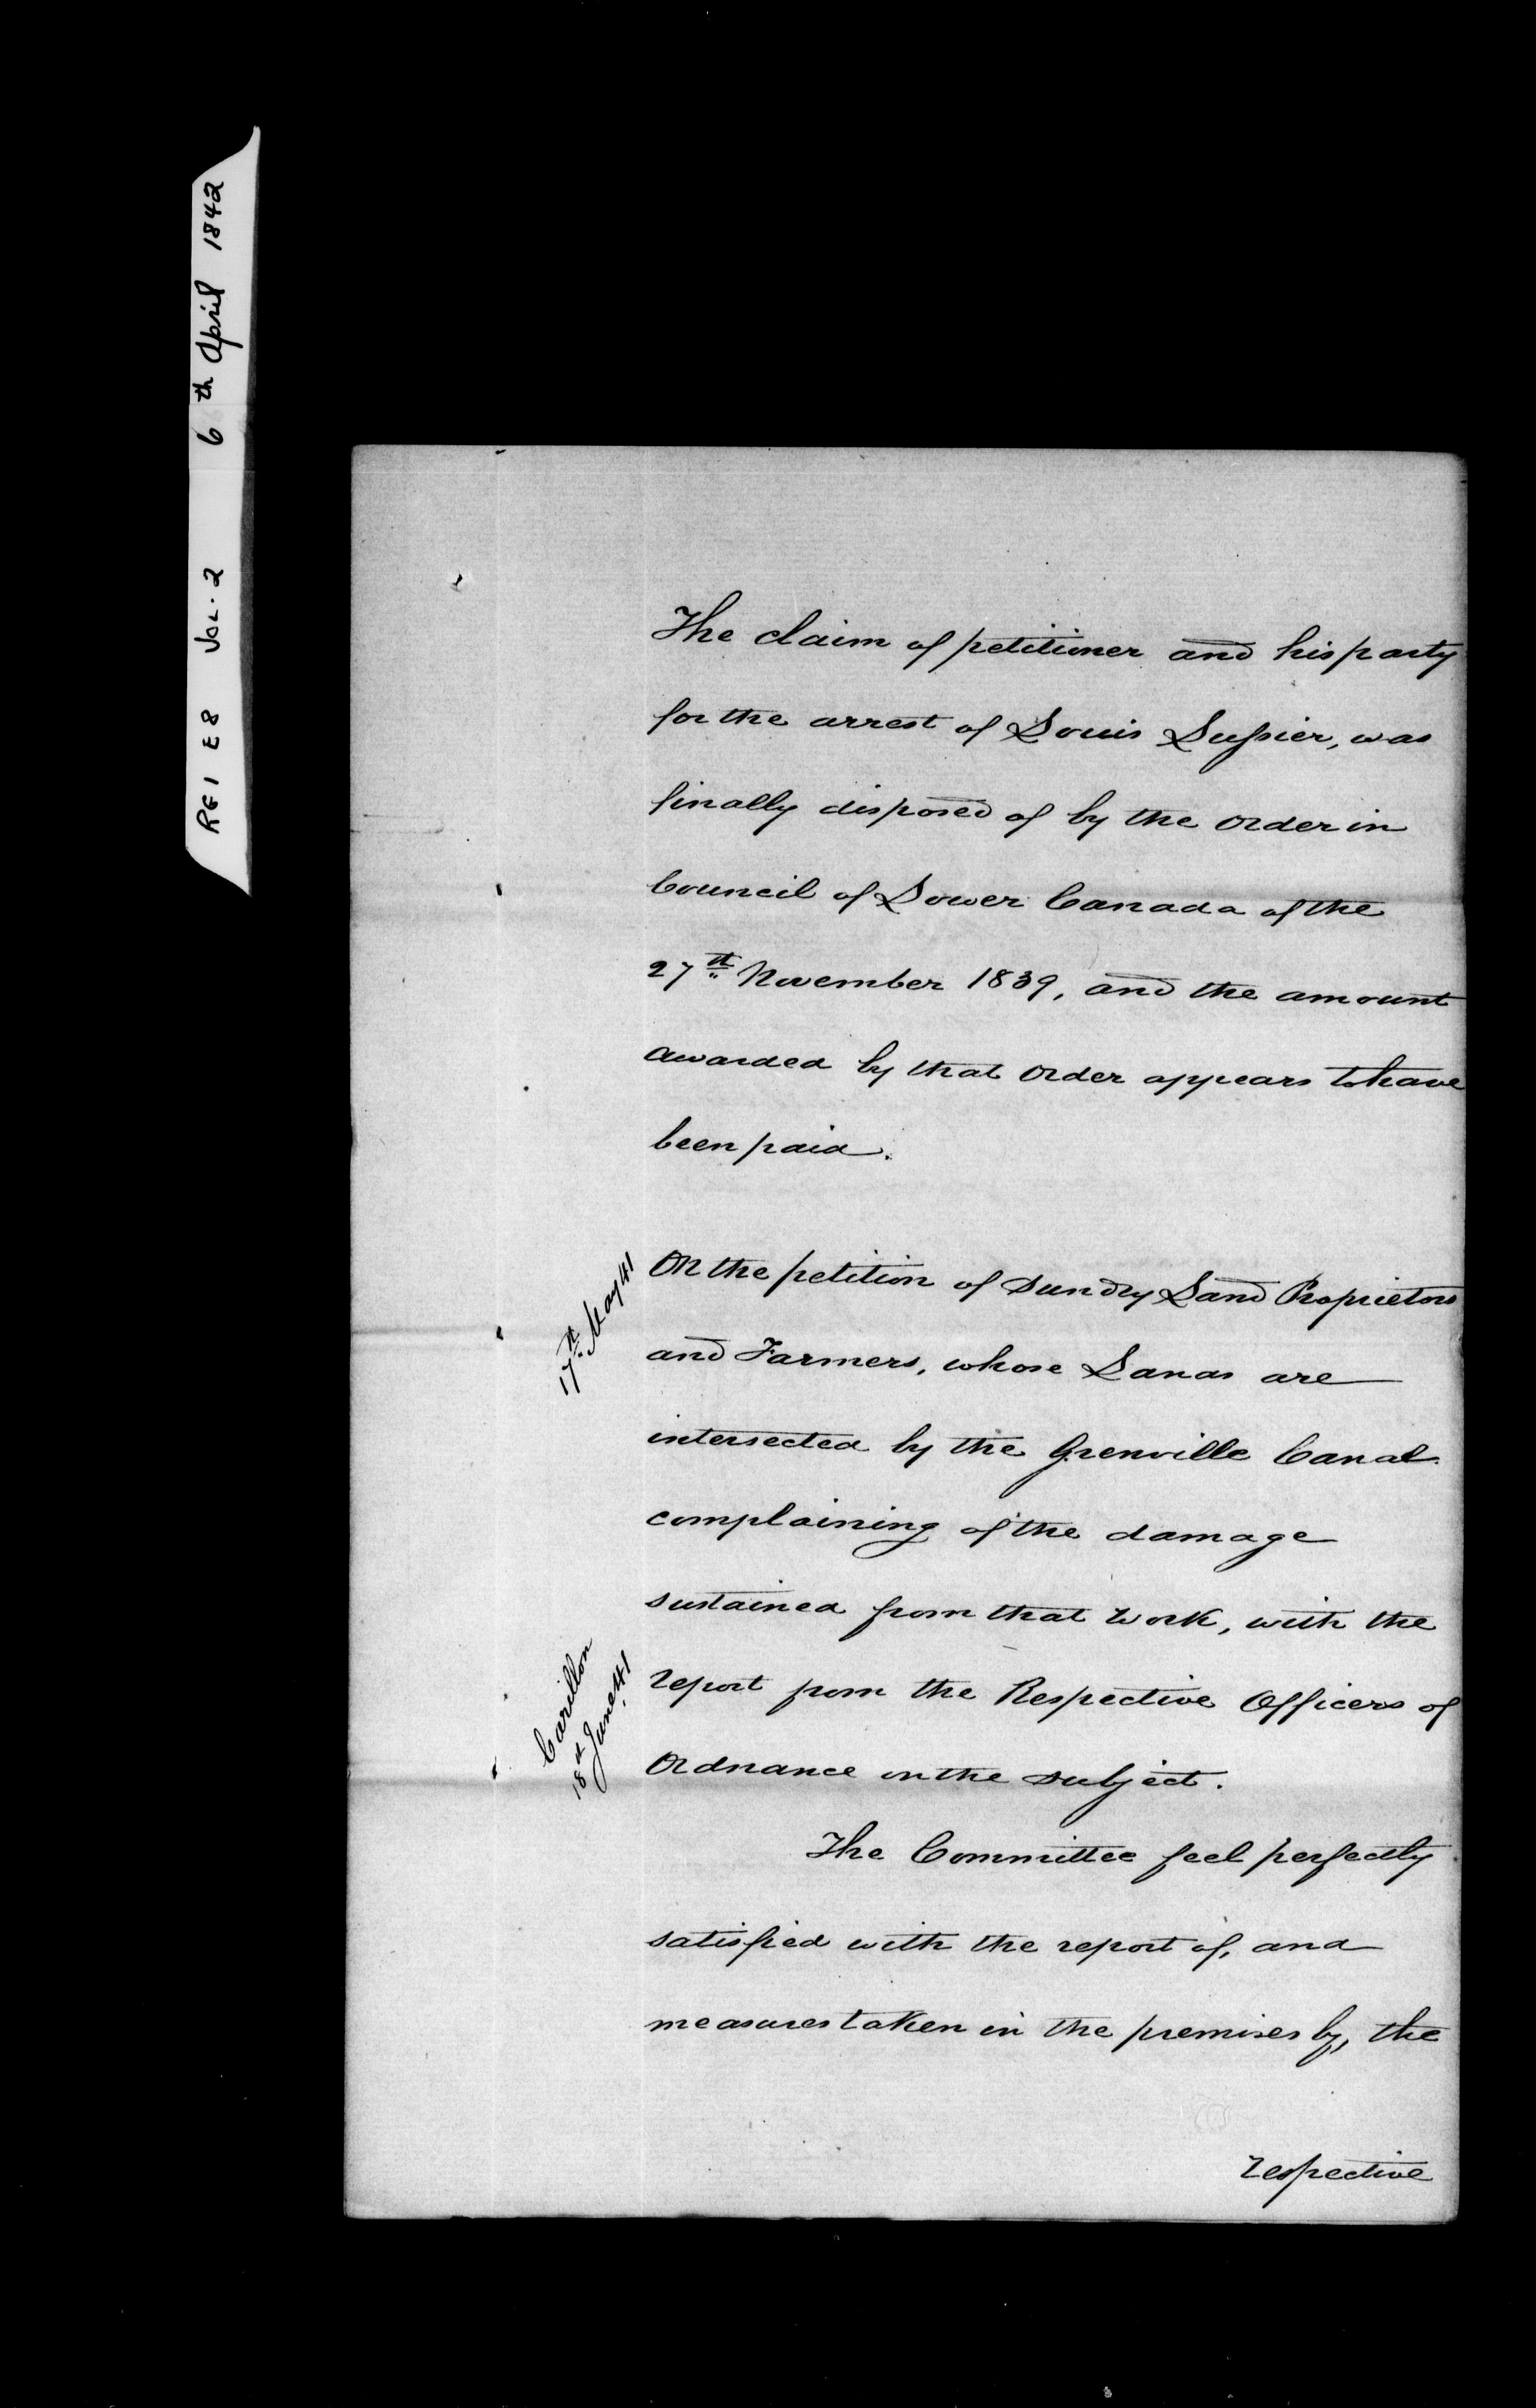 RG1 E8 VOL. 2 6th April 1842
The claim of petitioner and his party
for the arrest of Louis Lussier, was
finally disposed of by the Order in
Council of Lower Canada of the
27th November 1839, and the amount
awarded by that Order appears to have
been paid.
17th May 41
On the petition of Sundry Land Proprietors
and Farmers, whose Lands are
intersected by the Grenville Canal
complaining of the damage
sustained from that work, with the
Carillon
18th June 41
report from the Respective Officers of
Ordnance on the subject.
The Committee feel perfectly
satisfied with the report of, and
measures taken in the premises by, the
respective